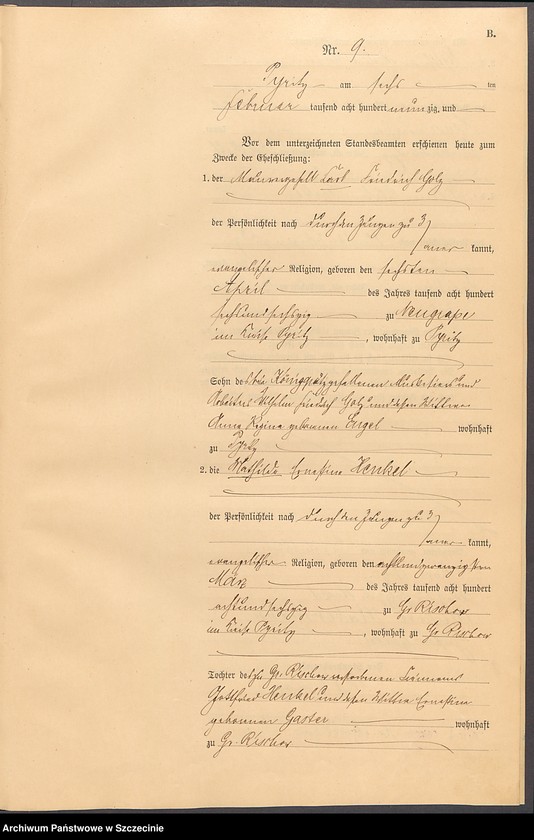 B.
Nr. 9.
Pyritz am sechs ten
Februar tausend acht hundert neunzig und
Vor dem unterzeichneten Standesbeamten erschienen heute zum
Zwecke der Eheschließung:
1. der Maurergeselle Carl Friedrich Golz
der Persönlichkeit nach durch den Zeugen zu 3
aner kannt,
evangelischer Religion, geboren den sechsten
April des Jahres tausend acht hundert
sechsundsechszig zu Neugrape
im Kreise Pyritz, wohnhaft zu Pyritz
Sohn des bei Königgrätz gefallenen Musketiers und
Arbeiters Wilhelm Friedrich Golz und dessen Wittwe
Anna Regina geborenen Engel wohnhaft
zu Pyritz
2. die Mathilde Ernestine Henkel
der Persönlichkeit nach durch den Zeugen zu 3
aner kannt,
evangelischer Religion, geboren den achtundzwanzigsten
März des Jahres tausend acht hundert
achtundsechszig zu Gr Rischow
im Kreise Pyritz, wohnhaft zu Gr Rischow
Tochter des zu Gr. Rischow verstorbenen
Gottfried Henkel und dessen Wittwe Ernestine
geborenen Gaster wohnhaft
zu Gr Rischow
Archiwum Państwowe w Szczecinie